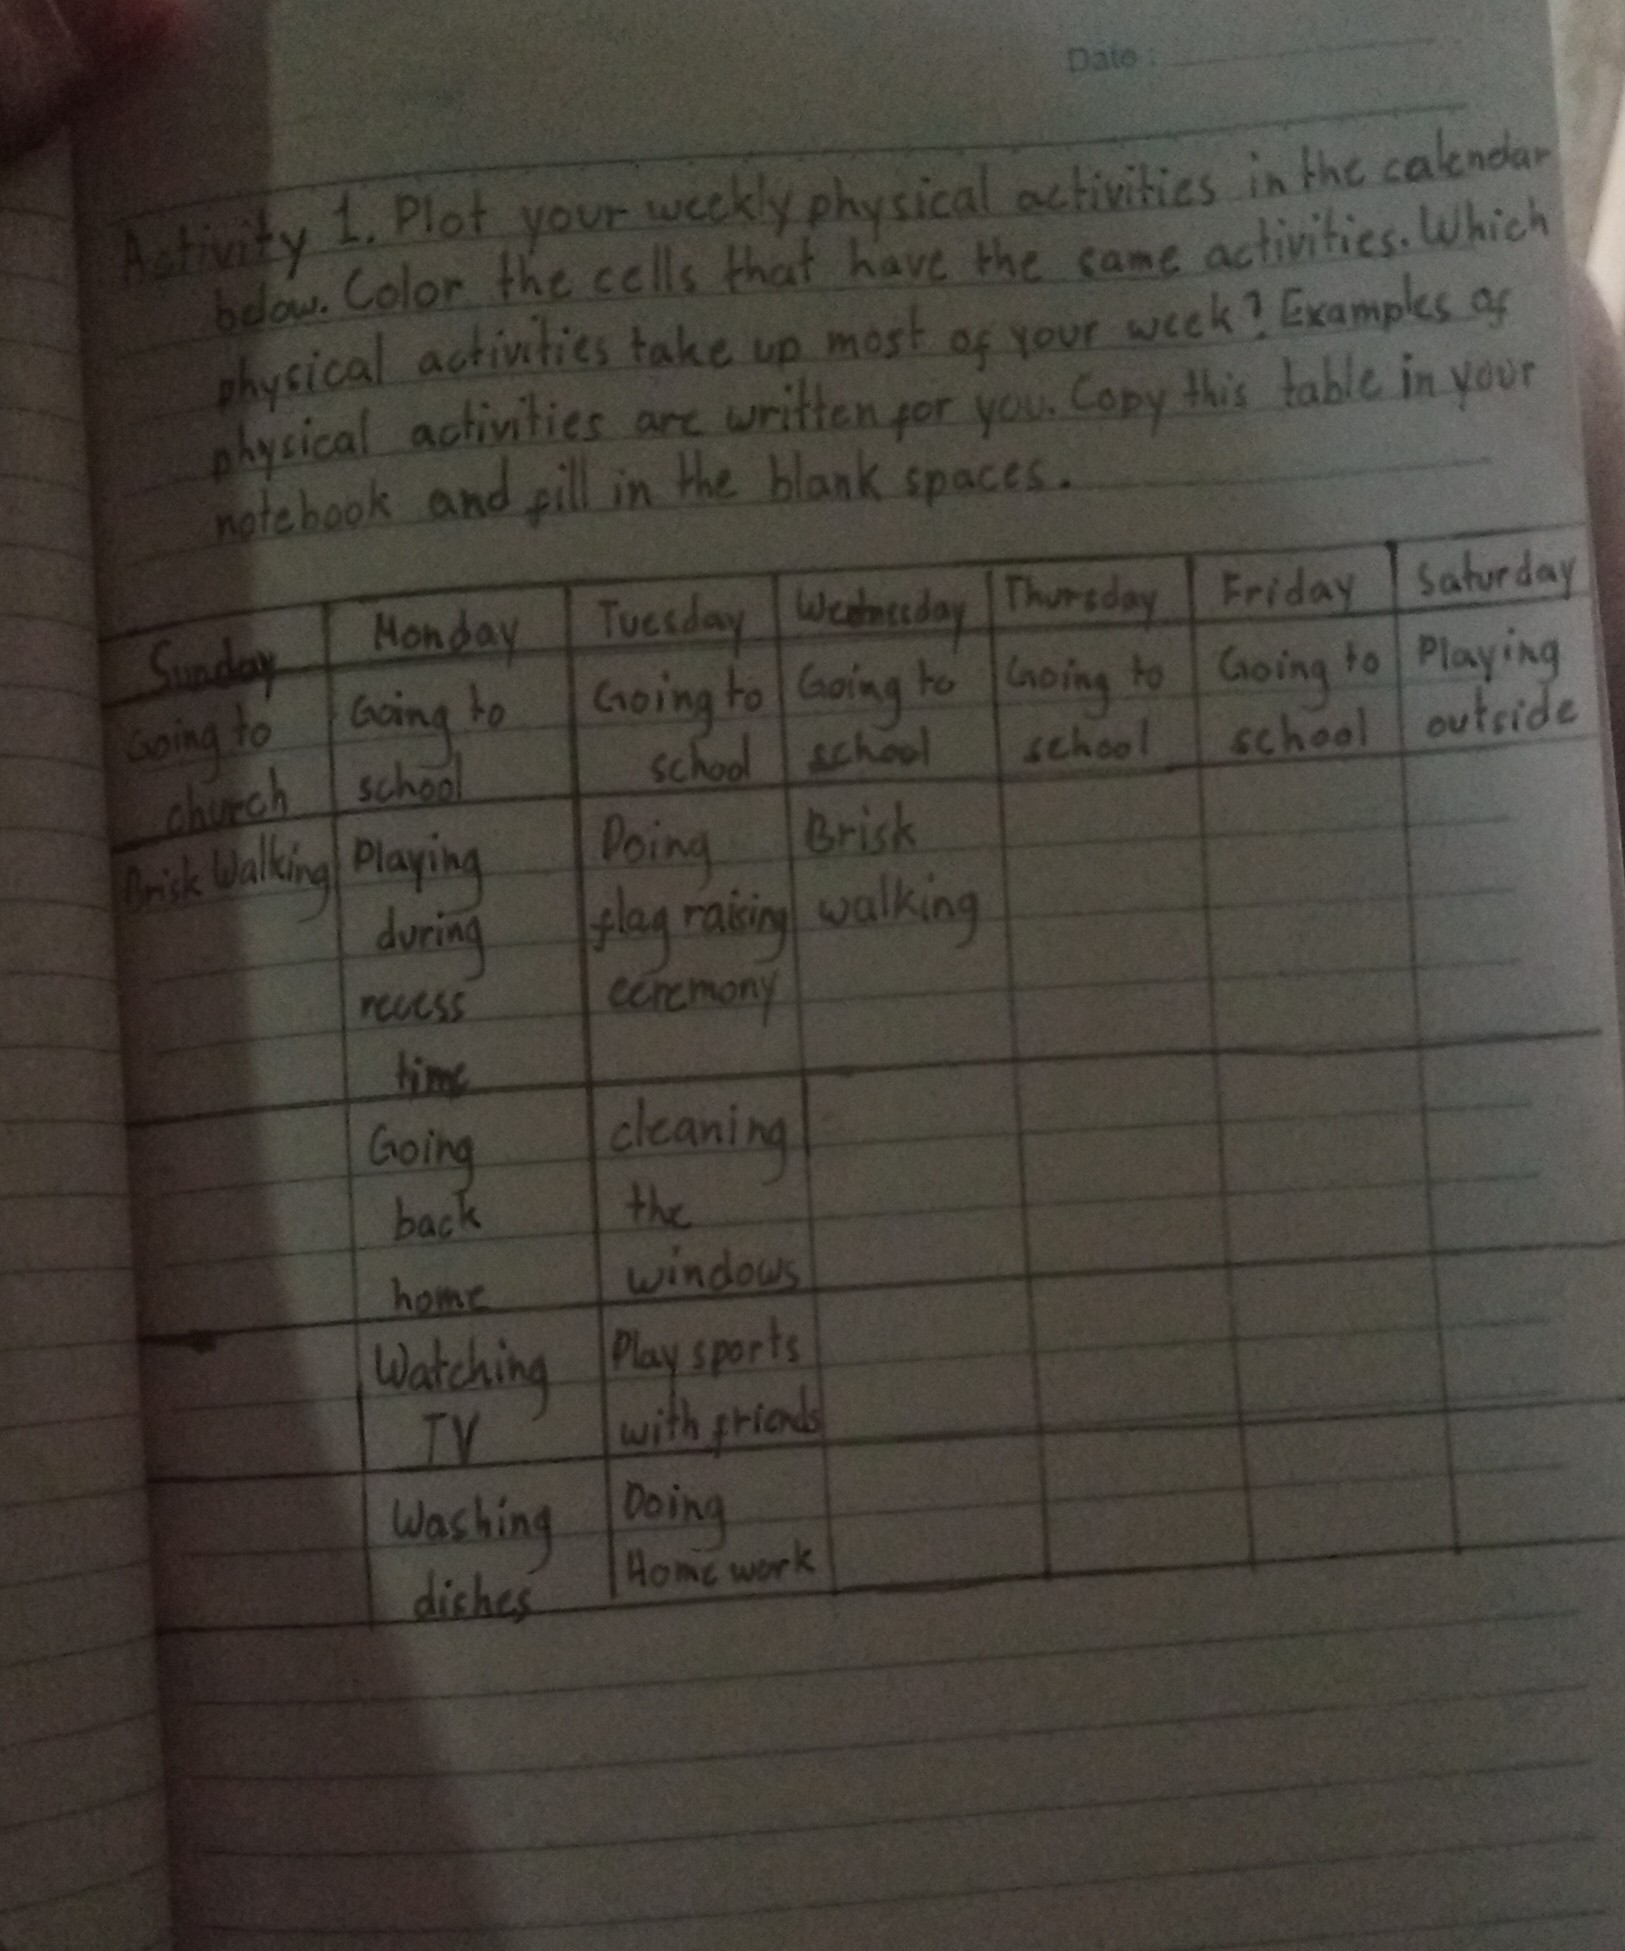 Date:
Activity 1. Plot your weekly physical activities in the calendar
below. Color the cells that have the same activities. Which
physical activities take up most of your week? Examples of
physical activities are written for you. Copy this table in your
notebook and fill in the blank spaces.
Sunday Monday Tuesday Wednesday Thursday Friday Saturday
Going to Going to Going to Going to Going to Going to Playing
church school school school school school outside
Brisk Walking Playing Doing Brisk
during flag raising walking
recess ceremony
time
Going cleaning
back the
home windows
Watching Play sports
TV with friends
Washing Doing
dishes Home work